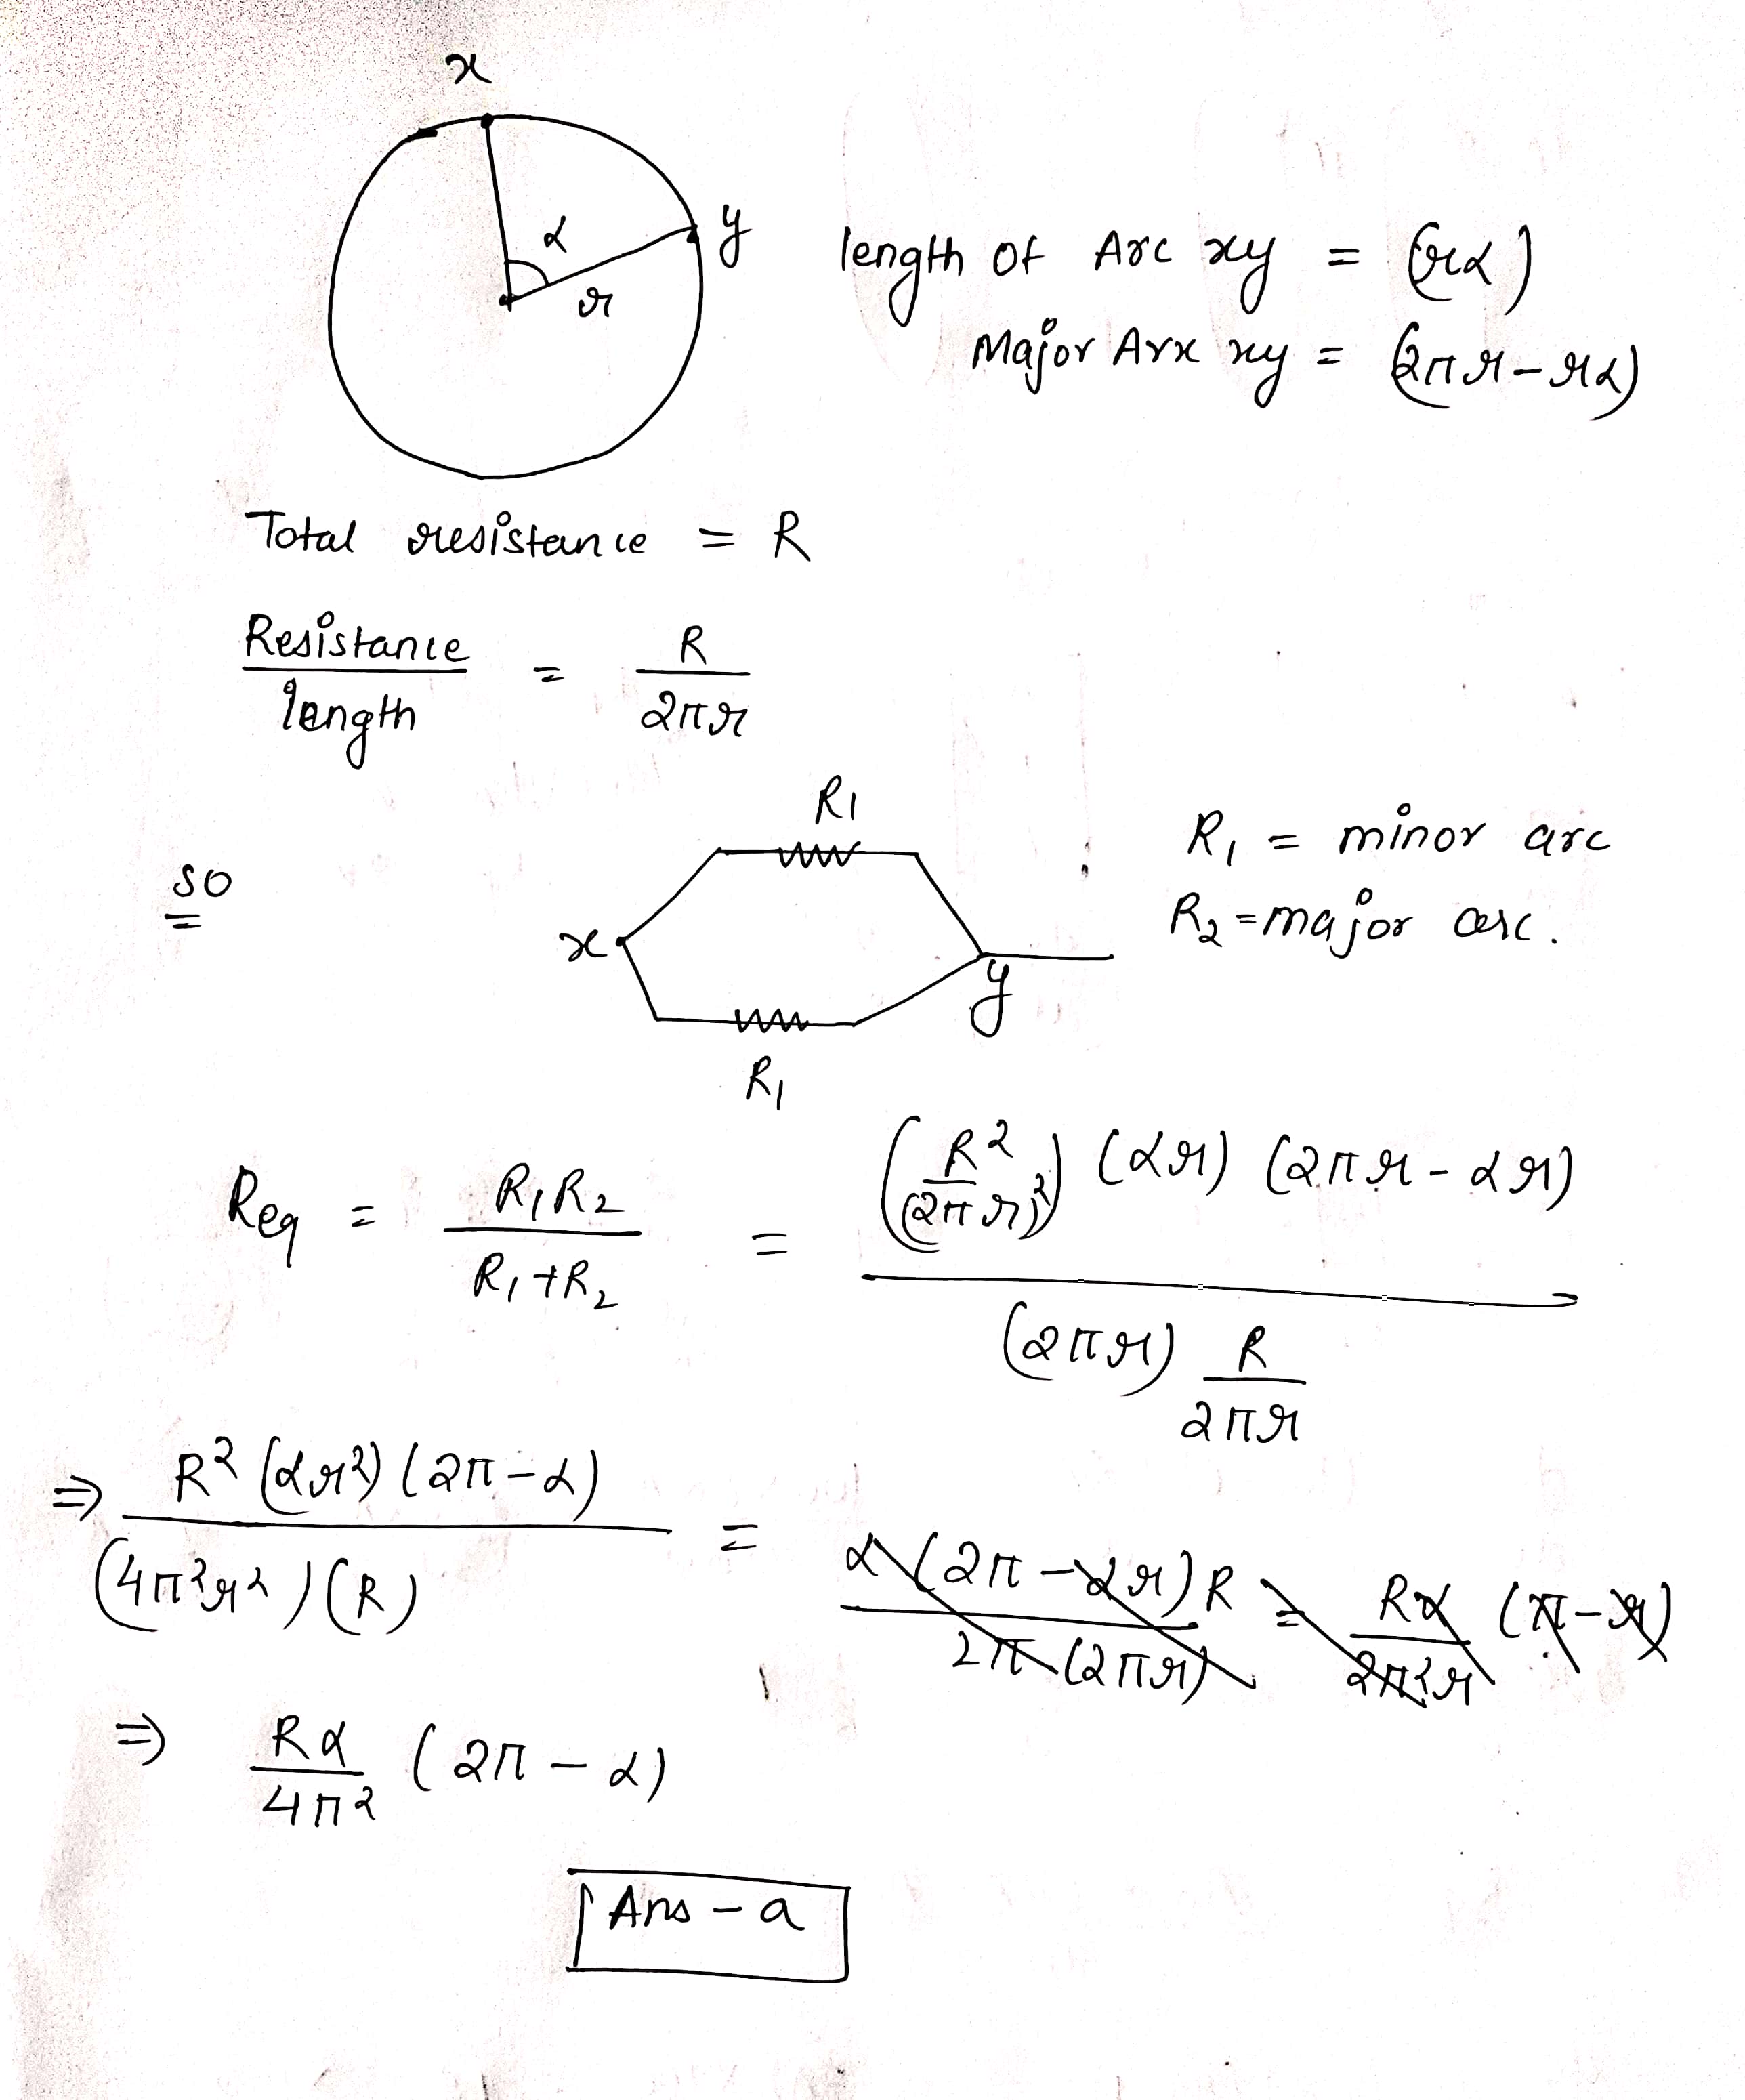 x
α
y
r
length of Arc xy = (rα)
Major Arx xy = (2πr-rα)
Total resistance = R
Resistance/length = R/2πr
R1
R1 = minor arc
so
x
y
R2 = major arc.
R1
Req = R1R2/(R1+R2) = (R²/(2πr)²) (αr) (2πr-αr) / (2πr) R/2πr
⇒ R² (αr²) (2π-α) / (4π²r²)(R) = α(2π-αr)R / 2π(2πr) = Rα/2π²r (π-r)
⇒ Rα/4π² (2π-α)
Ans - a